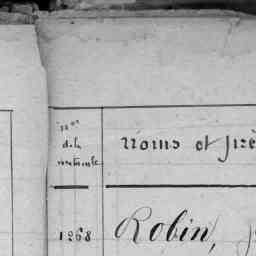 Nos
de la
matricule
Noms et pré
1268
Robin,